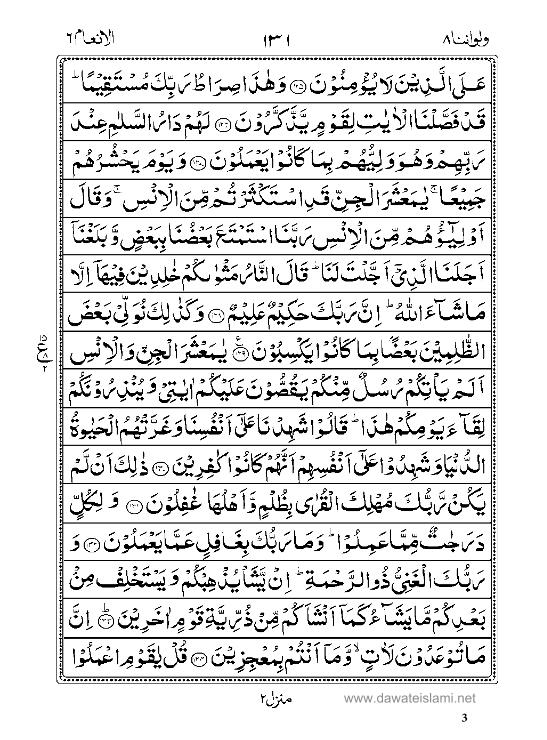 ولواننا۸ ۱۳۱ الانعام۶
عَلَى الَّذِيْنَ لَا يُؤْمِنُوْنَ ﴿۱۲۵﴾ وَهٰذَا صِرَاطُ رَبِّكَ مُسْتَقِيْمًا ؕ
قَدْ فَصَّلْنَا الْاٰيٰتِ لِقَوْمٍ يَّذَّكَّرُوْنَ ﴿۱۲۶﴾ لَهُمْ دَارُ السَّلٰمِ عِنْدَ
رَبِّهِمْ وَهُوَ وَلِيُّهُمْ بِمَا كَانُوْا يَعْمَلُوْنَ ﴿۱۲۷﴾ وَيَوْمَ يَحْشُرُهُمْ
جَمِيْعًا ۚ يٰمَعْشَرَ الْجِنِّ قَدِ اسْتَكْثَرْتُمْ مِّنَ الْاِنْسِ ۚ وَقَالَ
اَوْلِيٰٓؤُهُمْ مِّنَ الْاِنْسِ رَبَّنَا اسْتَمْتَعَ بَعْضُنَا بِبَعْضٍ وَّبَلَغْنَاۤ
اَجَلَنَا الَّذِيْۤ اَجَّلْتَ لَنَا ؕ قَالَ النَّارُ مَثْوٰىكُمْ خٰلِدِيْنَ فِيْهَاۤ اِلَّا
مَا شَآءَ اللّٰهُ ؕ اِنَّ رَبَّكَ حَكِيْمٌ عَلِيْمٌ ﴿۱۲۸﴾ وَكَذٰلِكَ نُوَلِّيْ بَعْضَ
الظّٰلِمِيْنَ بَعْضًۢا بِمَا كَانُوْا يَكْسِبُوْنَ ﴿۱۲۹﴾ يٰمَعْشَرَ الْجِنِّ وَالْاِنْسِ
اَلَمْ يَاْتِكُمْ رُسُلٌ مِّنْكُمْ يَقُصُّوْنَ عَلَيْكُمْ اٰيٰتِيْ وَيُنْذِرُوْنَكُمْ
لِقَآءَ يَوْمِكُمْ هٰذَا ؕ قَالُوْا شَهِدْنَا عَلٰۤى اَنْفُسِنَا وَغَرَّتْهُمُ الْحَيٰوةُ
الدُّنْيَا وَشَهِدُوْا عَلٰۤى اَنْفُسِهِمْ اَنَّهُمْ كَانُوْا كٰفِرِيْنَ ﴿۱۳۰﴾ ذٰلِكَ اَنْ لَّمْ
يَكُنْ رَّبُّكَ مُهْلِكَ الْقُرٰى بِظُلْمٍ وَّاَهْلُهَا غٰفِلُوْنَ ﴿۱۳۱﴾ وَ لِكُلٍّ
دَرَجٰتٌ مِّمَّا عَمِلُوْا ؕ وَمَا رَبُّكَ بِغَافِلٍ عَمَّا يَعْمَلُوْنَ ﴿۱۳۲﴾ وَ
رَبُّكَ الْغَنِيُّ ذُو الرَّحْمَةِ ؕ اِنْ يَّشَاْ يُذْهِبْكُمْ وَيَسْتَخْلِفْ مِنْۢ
بَعْدِكُمْ مَّا يَشَآءُ كَمَاۤ اَنْشَاَكُمْ مِّنْ ذُرِّيَّةِ قَوْمٍ اٰخَرِيْنَ ﴿۱۳۳﴾ اِنَّ
مَا تُوْعَدُوْنَ لَاٰتٍ ۙ وَّمَاۤ اَنْتُمْ بِمُعْجِزِيْنَ ﴿۱۳۴﴾ قُلْ يٰقَوْمِ اعْمَلُوْا
منزل۲
www.dawateislami.net
3